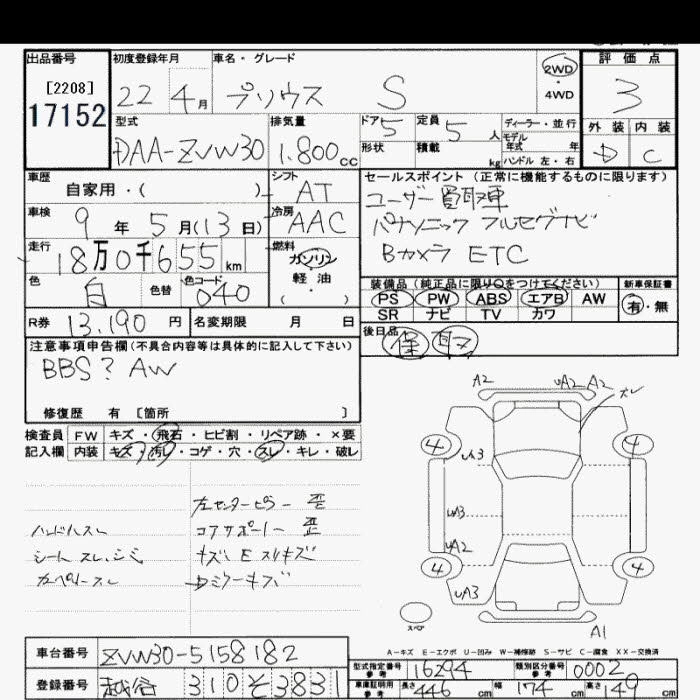 出品番号 初度登録年月 車名・グレード 評価点
[2208]
17152
22 4月 プリウス S 2WD・4WD 3
型式 排気量 ドア 定員 ディーラー・並行 外装 内装
DAA-ZVW30 1.800cc 5 5人 モデル年式 年 D C
形状 積載 kg ハンドル 左・右
車歴 シフト セールスポイント(正常に機能するものに限ります)
自家用・( ) AT ユーザー買取車
車検 9年5月(13日) 冷房 AAC パナソニック フルセグナビ
走行 18万0千655km 燃料 ガソリン Bカメラ ETC
軽油
・( )
色 白 色替 色コード 040 装備品(純正品に限り○をつけてください) 新車保証書
PS PW ABS エアB AW 有・無
SR ナビ TV カワ
R券 13,190円 名変期限 月 日 後日品 保 取
注意事項申告欄(不具合内容等は具体的に記入して下さい)
BBS? AW
修復歴 有 [箇所 ]
検査員 FW キズ・飛石・ヒビ割・リペア跡・×要
記入欄 内装 キズ・汚レ・コゲ・穴・スレ・キレ・破レ
左センターピラー 歪
ハンドルスレ コアサポート 歪
シート スレ、シミ キズ E スリキズ
カーペットスレ Dミラーキズ
A2 UA2 A2 スレ
4 4
UA3
UA3
UA2
4 4
UA3
スペア A1
A-キズ E-エクボ U-凹み W-補修跡 S-サビ C-腐食 XX-交換済
車台番号 ZVW30-5158182
型式指定番号 参考 16294 類別区分番号 参考 0002
登録番号 越谷 310 そ 3831
車庫証明用 参考 長さ 446cm 幅 174cm 高さ 149cm